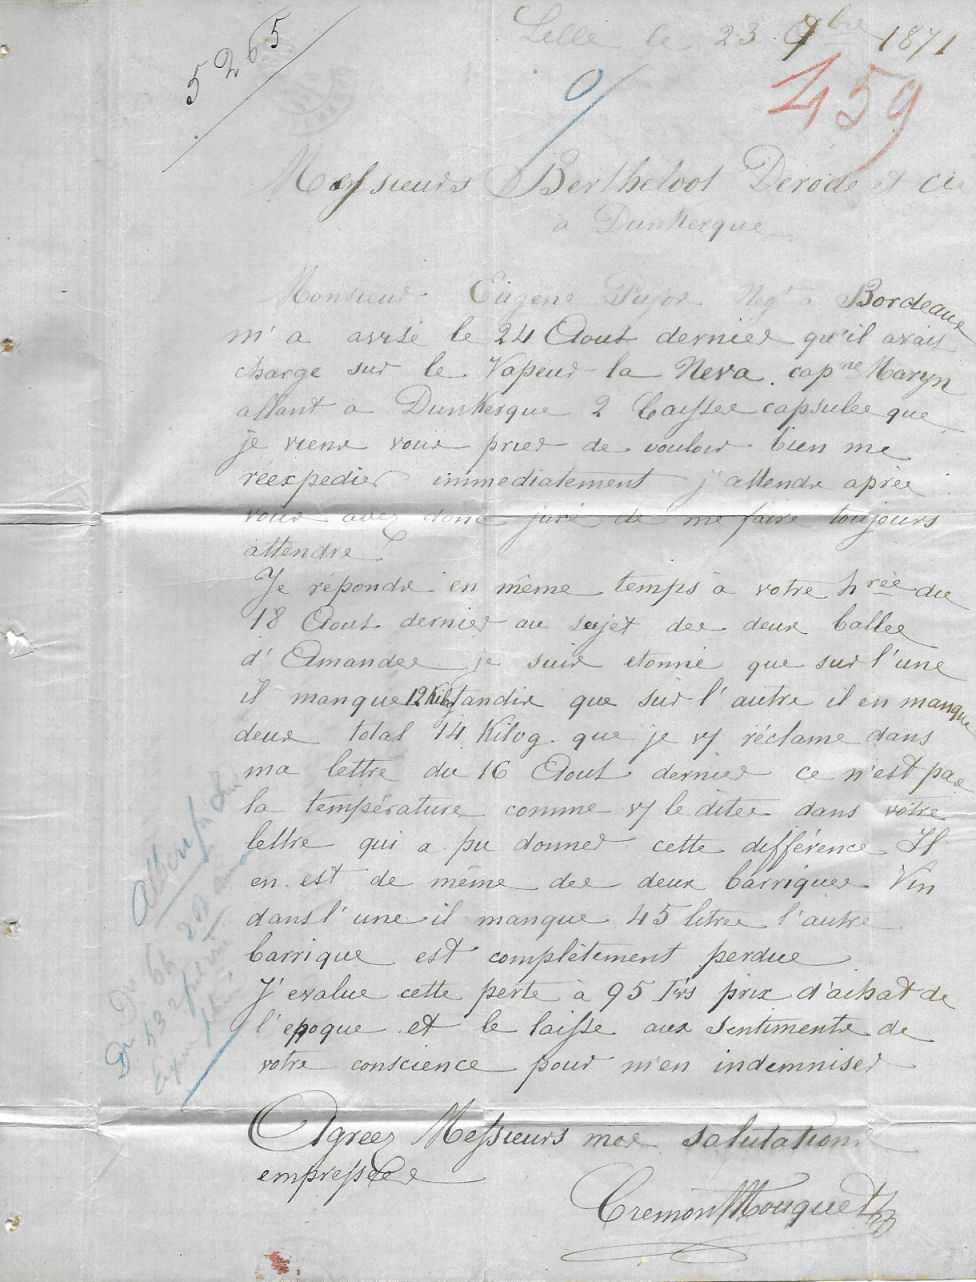 5265
Lille le 23 7bre 1871
0/
459
Messieurs Berthelool Derode et Cie
à Dunkerque
Monsieur Eugene Pujos Negt à Bordeaux
m'a avisé le 24 Aout dernier qu'il avait
chargé sur le Vapeur la Neva capne Maryn
allant à Dunkerque 2 Caisses capsules que
je viens vous prier de vouloir bien me
réexpedier immediatement j'attends après
vous avez donc juré de me faire toujours
attendre
Je réponds en même temps à votre hrée du
18 Aout dernier au sujet des deux balles
d'Amandes je suis etonné que sur l'une
il manque 12 Kilog tandis que sur l'autre il en manque
deux total 14 Kilog. que je vs réclame dans
ma lettre du 16 Aout dernier ce n'est pas
la température comme vs le dites dans votre
lettre qui a pu donner cette différence Il
en est de même des deux barriques Vin
dans l'une il manque 45 litres l'autre
barrique est complètement perdue
J'evalue cette perte à 95 Frs prix d'achat de
l'epoque et le laisse aux sentiments de
votre conscience pour m'en indemniser
Agreez Messieurs mes salutations
empressées
Cremon Mouquet